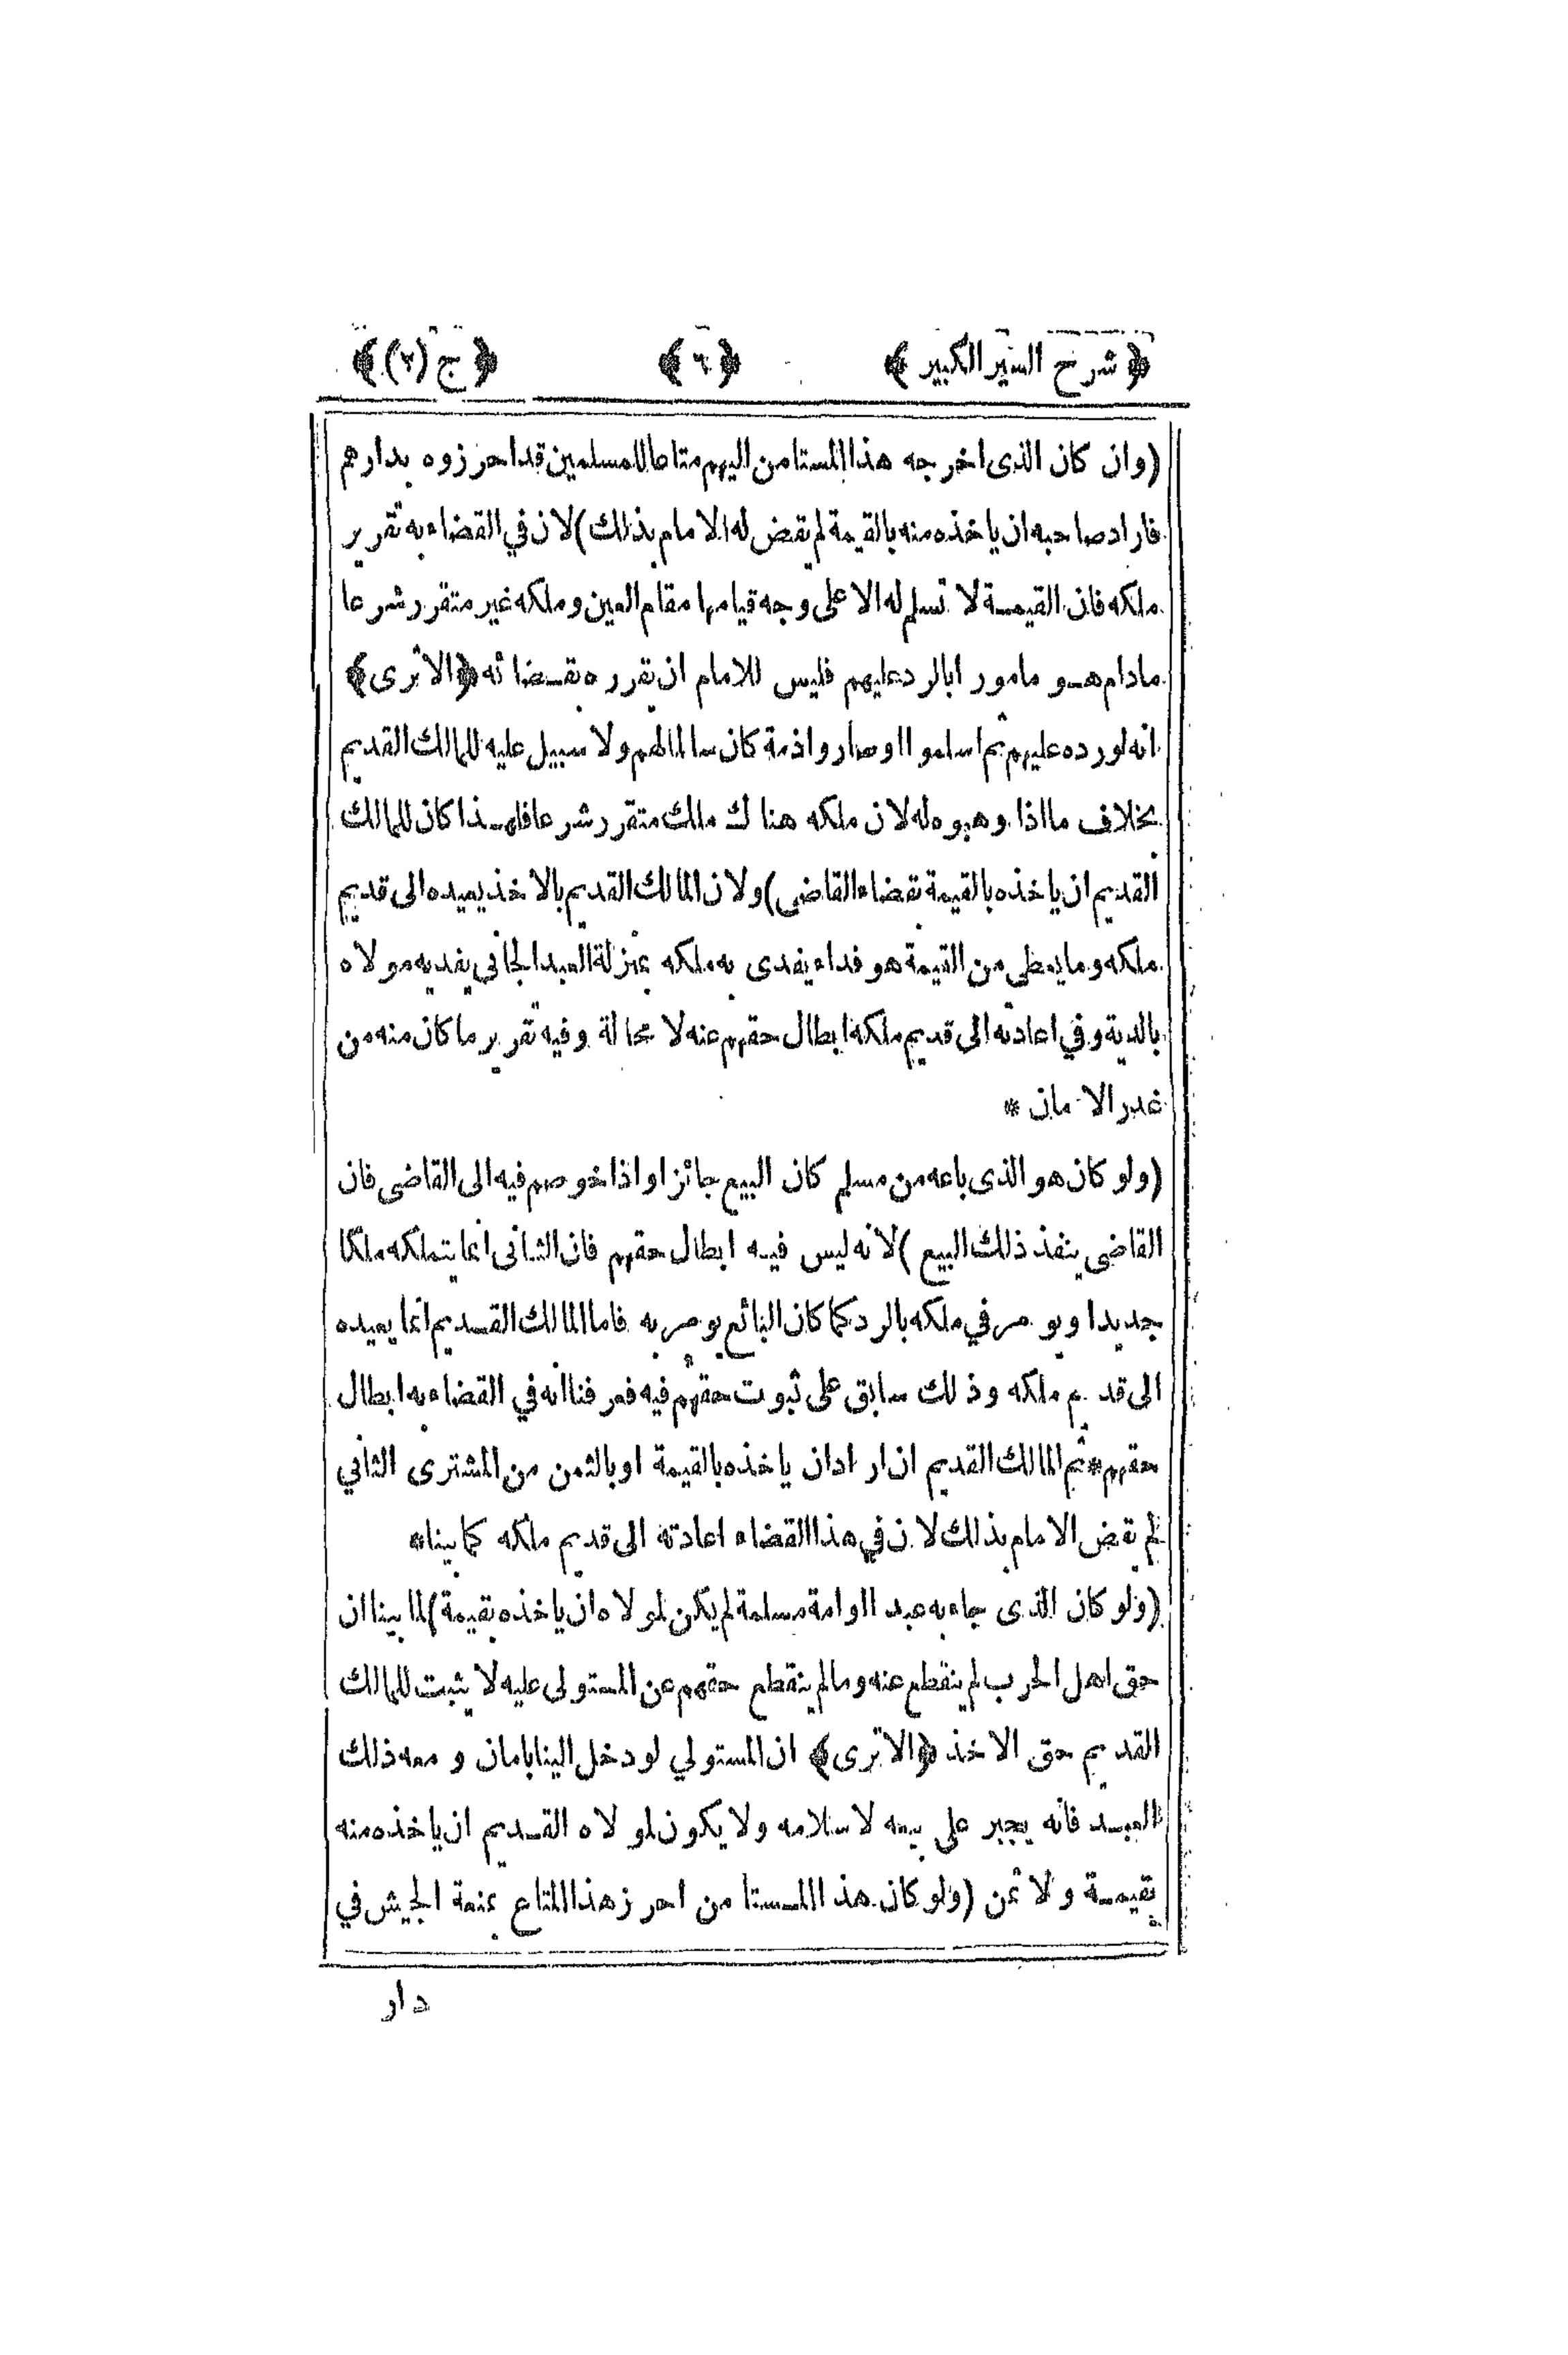 ﴿ شرح السير الكبير ﴾ ﴿ ٦ ﴾ ﴿ ج (٢) ﴾
(وان كان الذى اخرجه هذا المستامن اليهم متاعا للمسلمين قد احرزوه بدارهم
فاراد صاحبه ان ياخذه منه بالقيمة لم يقض له الامام بذلك) لان في القضاء به تقرير
ملكه فان القيمة لا تسلم له الا على وجه قيامها مقام العين وملكه غير متقرر شرعا
مادام هو مامورا بالرد عليهم فليس للامام ان يقرره بقضائه ﴿الا ترى﴾
انه لو رده عليهم ثم اسلموا او صاروا ذمة كان سالما لهم ولا سبيل عليه للمالك القديم
بخلاف ما اذا وهبوه له لان ملكه هناك ملك متقرر شرعا فلهذا كان للمالك
القديم ان ياخذه بالقيمة بقضاء القاضى) ولان المالك القديم بالاخذ يعيده الى قديم
ملكه وما يعطى من القيمة هو فداء يفدى به ملكه بمنزلة العبد الجاني يفديه مولاه
بالدية وفي اعادته الى قديم ملكه ابطال حقهم عنه لا محالة وفيه تقرير ما كان منه من
غدر الامان *
(ولو كان هو الذى باعه من مسلم كان البيع جائزا واذا خوصم فيه الى القاضى فان
القاضى ينفذ ذلك البيع) لانه ليس فيه ابطال حقهم فان الثانى انما يتملكه ملكا
جديدا ويومر في ملكه بالرد كما كان البائع يومر به فاما المالك القديم انما يعيده
الى قديم ملكه وذلك سابق على ثبوت حقهم فيه فعرفنا انه في القضاء به ابطال
حقهم * ثم المالك القديم ان اراد ان ياخذه بالقيمة او بالثمن من المشترى الثاني
لم يقض الامام بذلك لان في هذا القضاء اعادته الى قديم ملكه كما بينا *
(ولو كان الذى جاء به عبدا او امة مسلمة لم يكن لمولاه ان ياخذه بقيمة) لما بينا ان
حق اهل الحرب لم ينقطع عنه ومالم ينقطع حقهم عن المستولى عليه لا يثبت للمالك
القديم حق الاخذ ﴿الا ترى﴾ ان المستولي لو دخل الينا بامان و معه ذلك
العبد فانه يجبر على بيعه لاسلامه ولا يكون لمولاه القديم ان ياخذه منه
بقيمة ولا ثمن (ولو كان هذا المستامن احرز هذا المتاع بمنعة الجيش في
دار